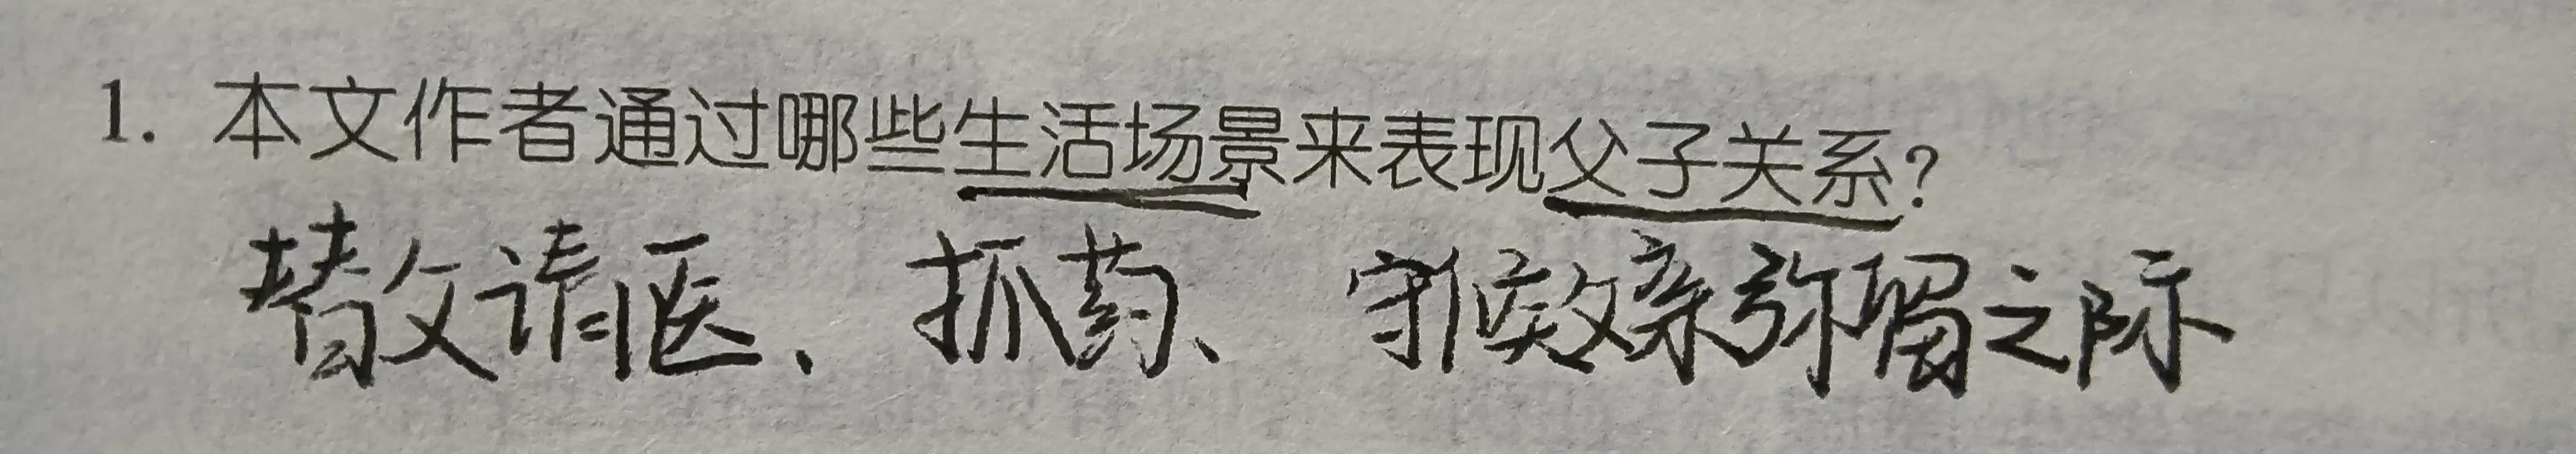 1. 本文作者通过哪些生活场景来表现父子关系?
替父请医、抓药、守候父亲弥留之际